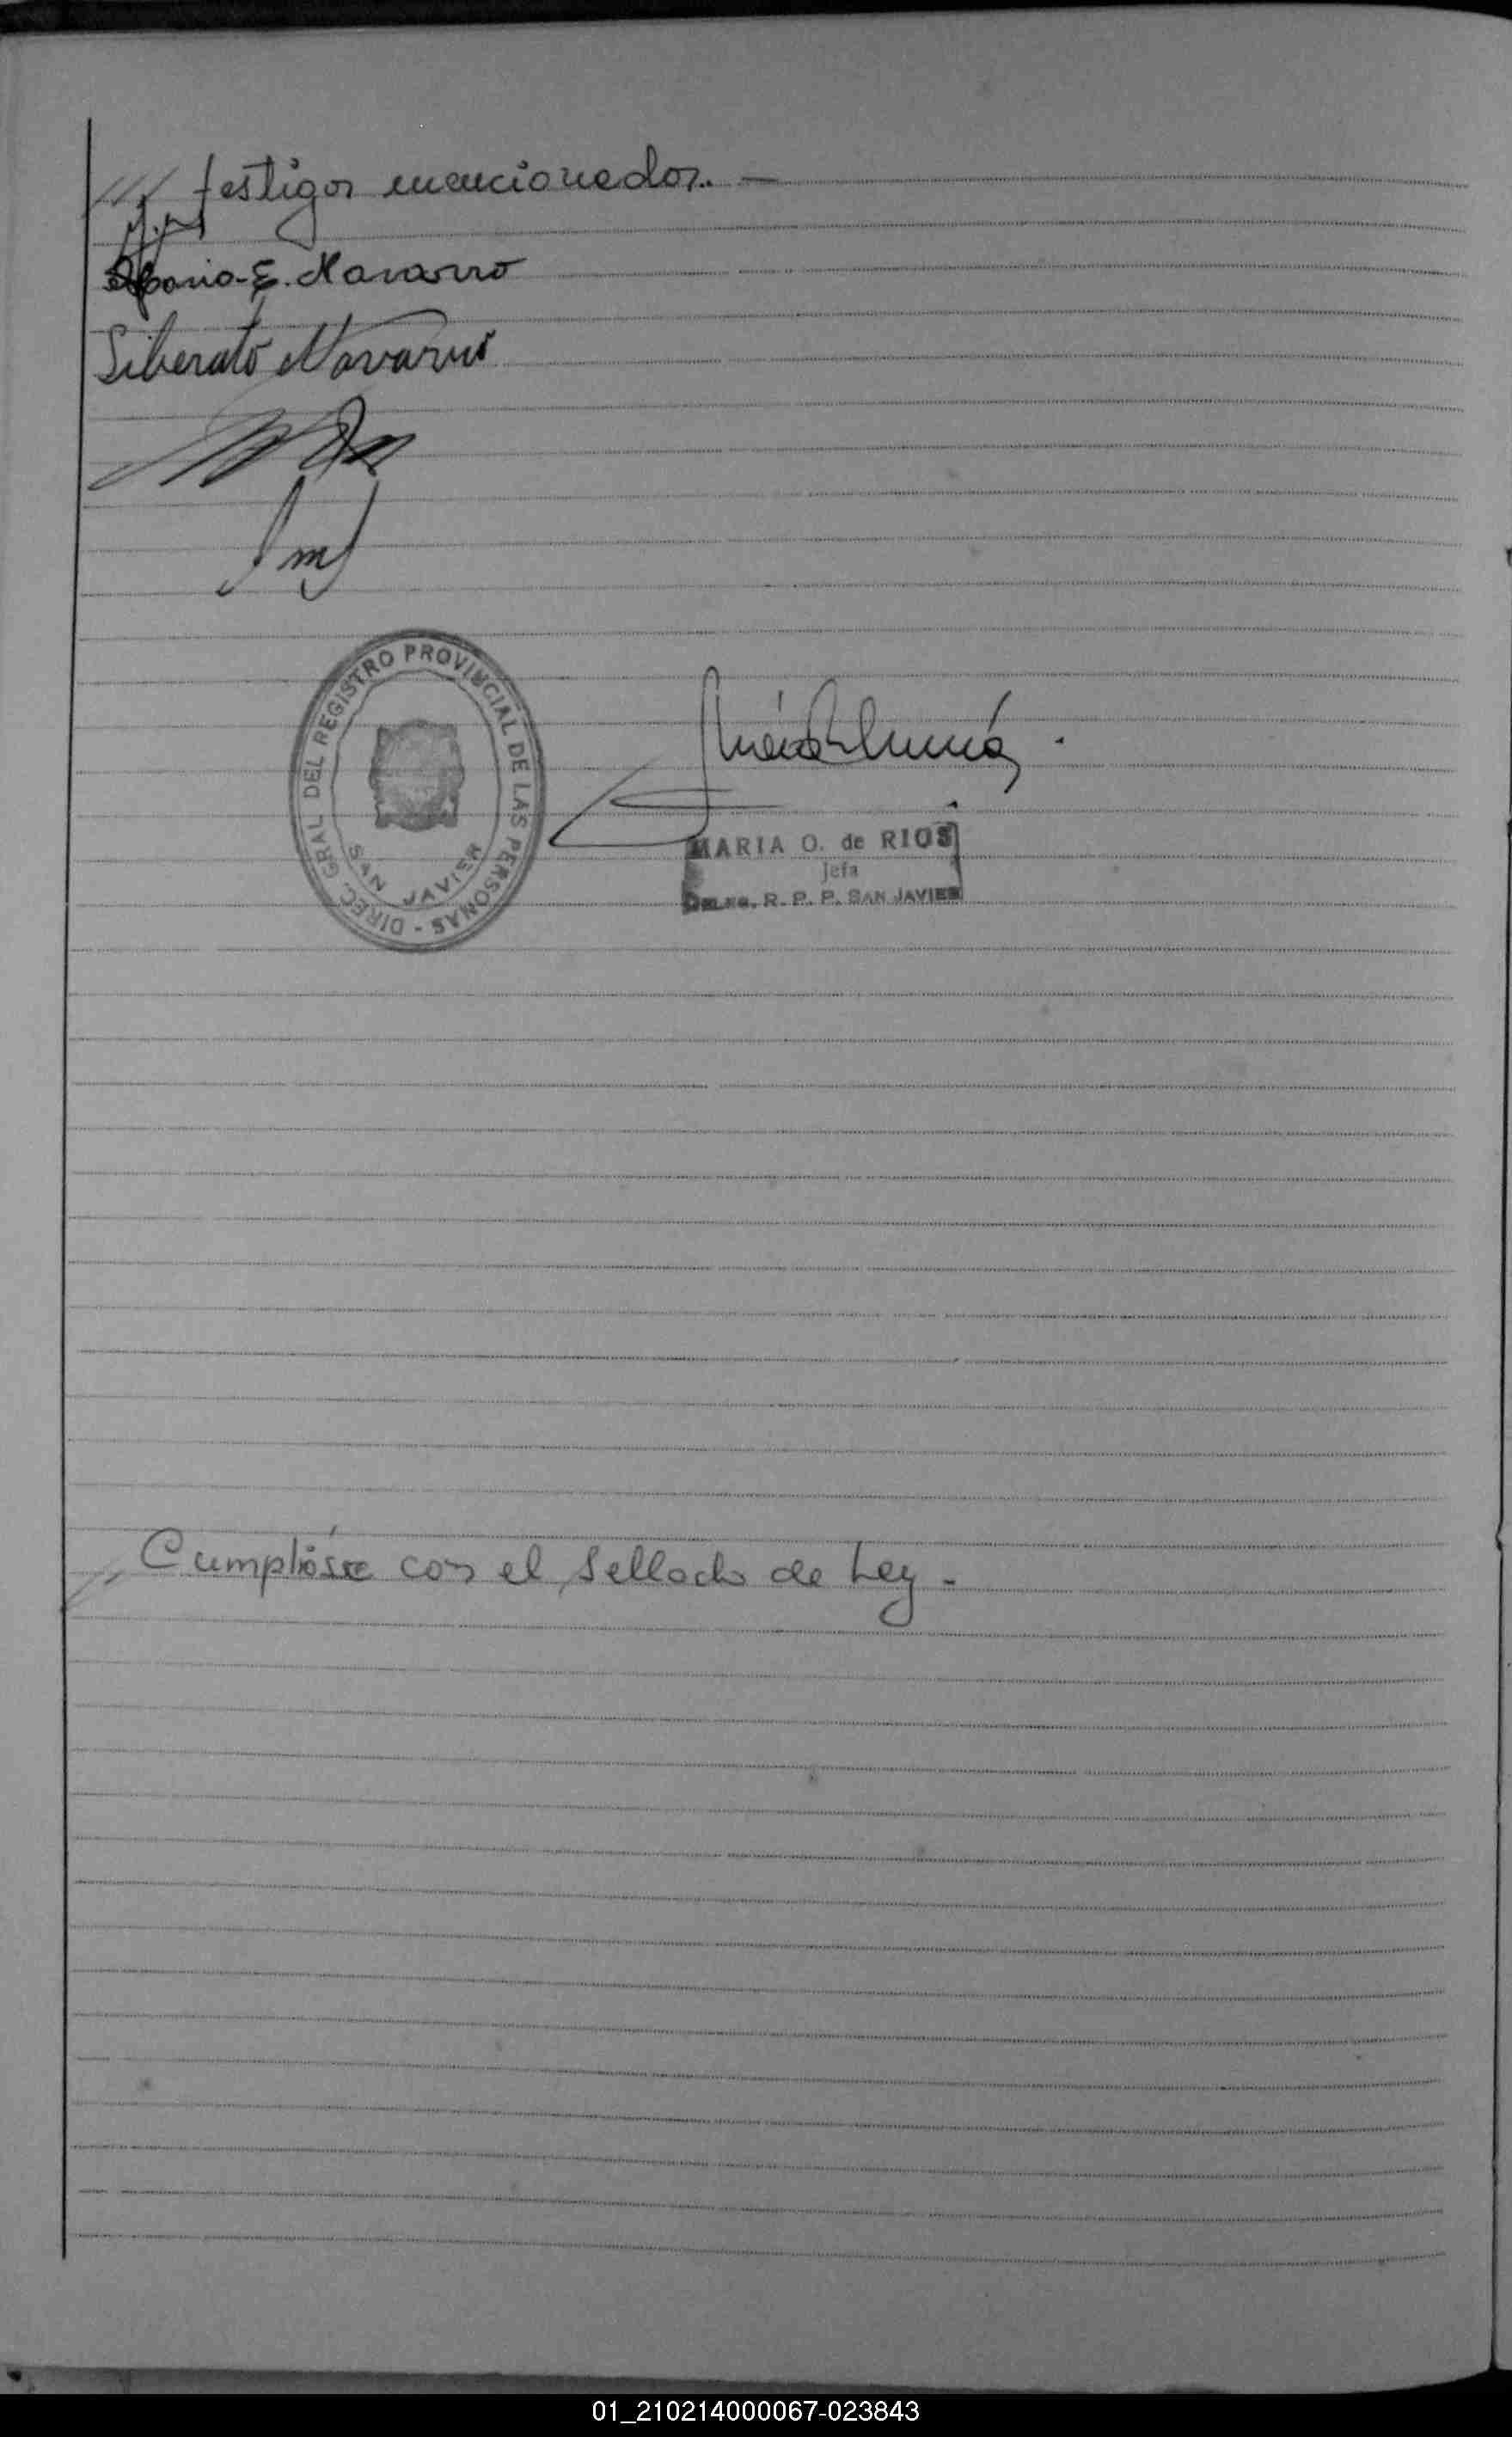 /// testigos mencionados. —
E. Navarro
Liberato Navarro
DIREC. GRAL. DEL REGISTRO PROVINCIAL DE LAS PERSONAS -
SAN JAVIER
MARIA O. de RIOS
Jefa
DELEG. R. P. P. SAN JAVIER
Cumplióse con el sellado de Ley -
01_210214000067-023843